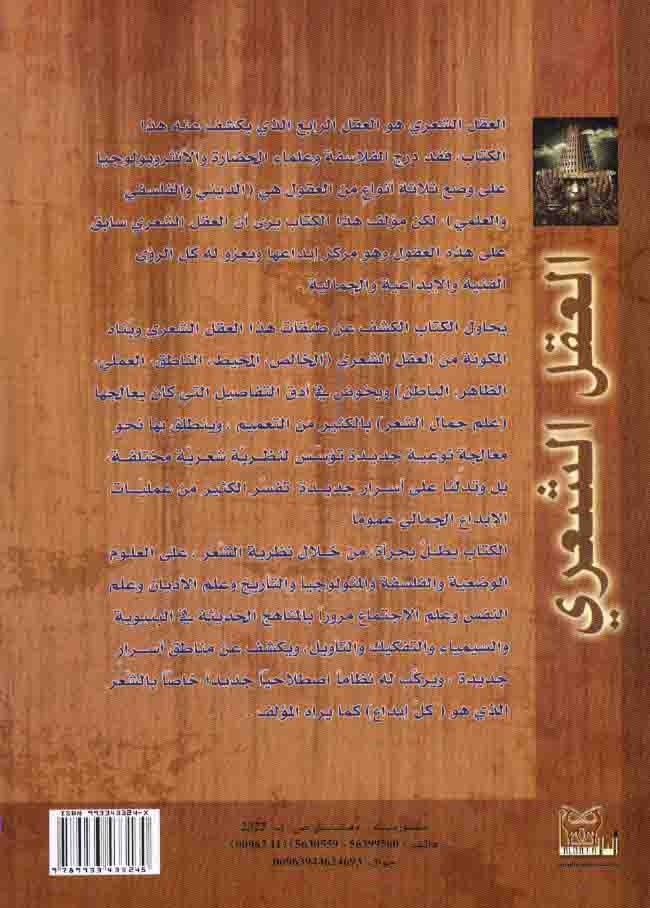 العقل الشعري هو العقل الرابع الذي يكشف عنه هذا
الكتاب، فقد درج الفلاسفة وعلماء الحضارة والأنثروبولوجيا
على وضع ثلاثة أنواع من العقول هي (الديني والفلسفي
والعلمي). لكن مؤلف هذا الكتاب يرى أن العقل الشعري سابق
على هذه العقول وهو مركز إبداعها ويعزو له كل الرؤى
الفنية والإبداعية والجمالية.
يحاول الكتاب الكشف عن طبقات هذا العقل الشعري وبناه
المكونة من العقل الشعري (الخالص، المحيط، الناطق، العملي،
الظاهر، الباطن) ويخوض في أدق التفاصيل التي كان يعالجها
(علم جمال الشعر) بالكثير من التعميم، وينطلق بها نحو
معالجة نوعية جديدة تؤسّس لنظريّة شعريّة مختلفة،
بل وتدلّنا على أسرار جديدة تفسّر الكثير من عمليات
الإبداع الجمالي عموماً
الكتاب يطلّ بجرأة، من خلال نظرية الشّعر، على العلوم
الوضعية والفلسفة والثيولوجيا والتأريخ وعلم الأديان وعلم
النفس وعلم الاجتماع مروراً بالمناهج الحديثة في البنيوية
والسيمياء والتفكيك والتأويل، ويكشف عن مناطق أسرار
جديدة، ويركّب له نظاماً اصطلاحيّاً جديداً خاصّاً بالشّعر
الذي هو (كلّ إبداع) كما يراه المؤلف.
العقل الشعري
ISBN 993343324-X
9 789933 433245